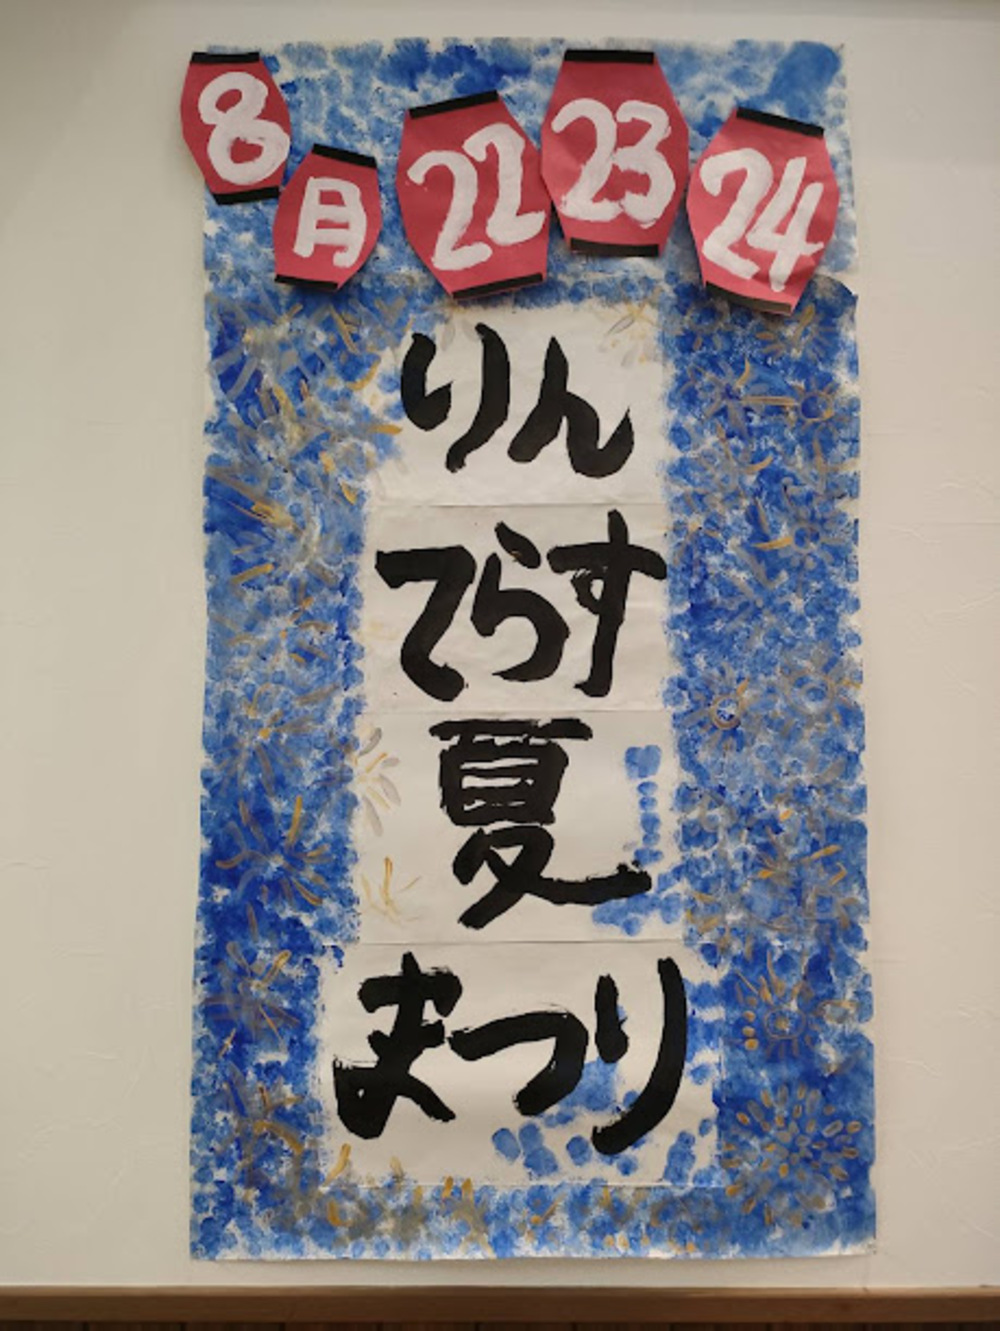 8月 22 23 24
りん
てらす
夏
まつり